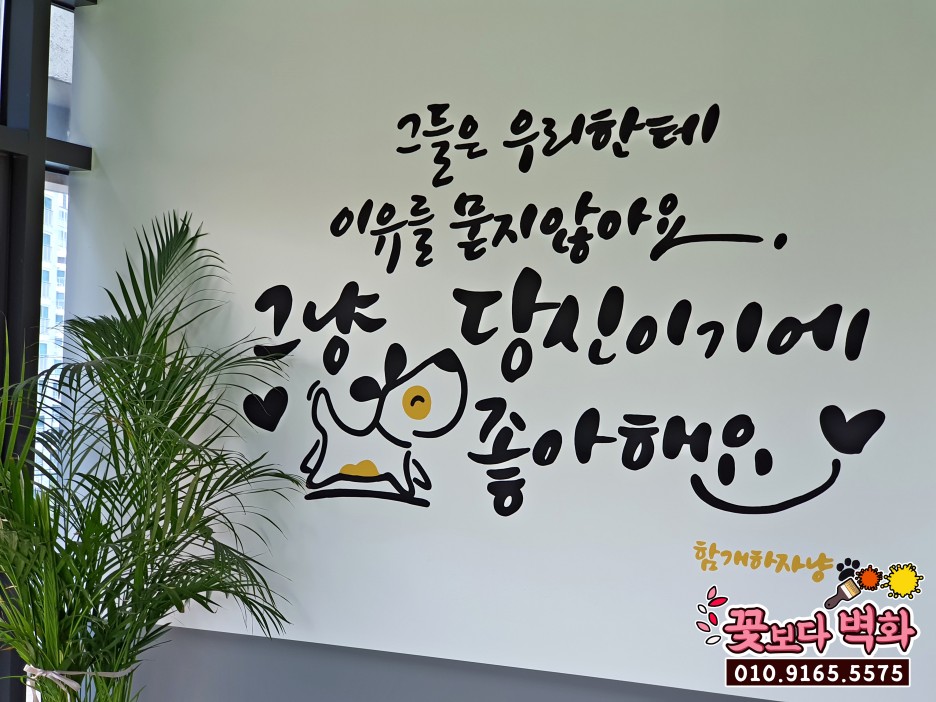 그들은 우리한테
이유를 묻지않아요.
그냥 당신이기에
좋아해요
함개하자냥
꽃보다 벽화
010.9165.5575